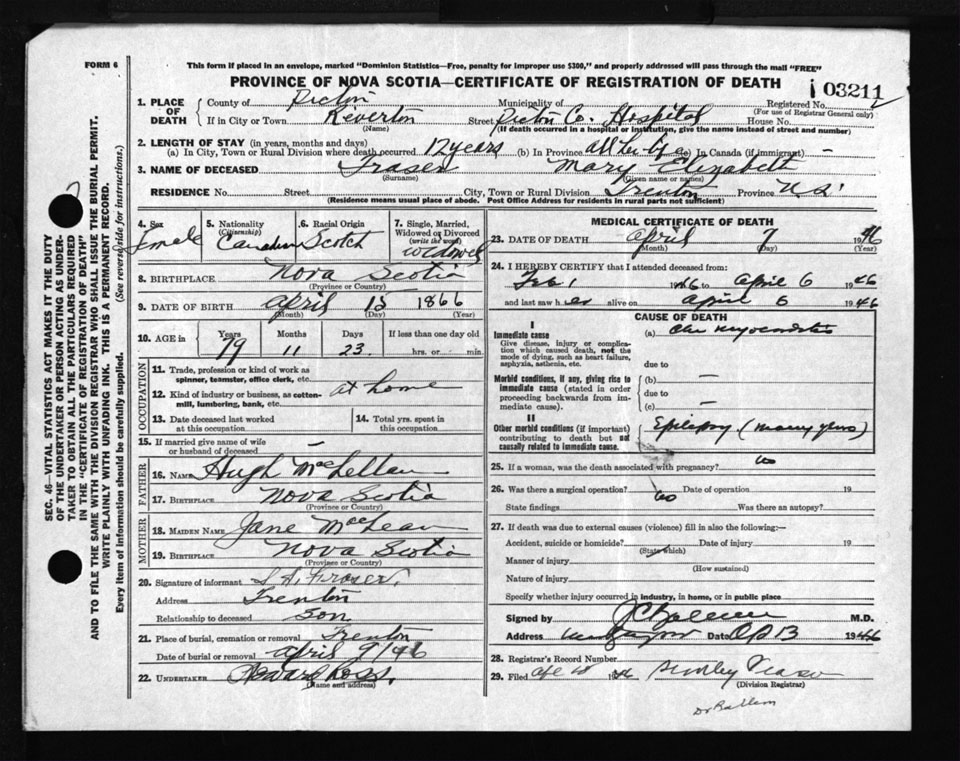 FORM 6
This form if placed in an envelope, marked "Dominion Statistics—Free, penalty for improper use $300," and properly addressed will pass through the mail "FREE"
PROVINCE OF NOVA SCOTIA—CERTIFICATE OF REGISTRATION OF DEATH
03211
1. PLACE OF DEATH
County of Pictou Municipality of Registered No.
(For use of Registrar General only)
If in City or Town Riverton Street Pictou Co. Hospital House No.
(Name) (If death occurred in a hospital or institution, give the name instead of street and number)
2. LENGTH OF STAY (in years, months and days)
(a) In City, Town or Rural Division where death occurred 12 years (b) In Province all her life (c) In Canada (if immigrant) —
3. NAME OF DECEASED Fraser Mary Elizabeth
(Surname) (Given name or names)
RESIDENCE No. Street City, Town or Rural Division Trenton Province N.S.
(Residence means usual place of abode. Post Office Address for residents in rural parts not sufficient)
SEC. 46—VITAL STATISTICS ACT MAKES IT THE DUTY
OF THE UNDERTAKER OR PERSON ACTING AS UNDER-
TAKER TO OBTAIN ALL THE PARTICULARS REQUIRED
IN THE "CERTIFICATE OF REGISTRATION OF DEATH"
AND TO FILE THE SAME WITH THE DIVISION REGISTRAR WHO SHALL ISSUE THE BURIAL PERMIT.
WRITE PLAINLY WITH UNFADING INK. THIS IS A PERMANENT RECORD.
Every item of information should be carefully supplied. (See reverse side for instructions.)
4. Sex
Female
5. Nationality
(Citizenship)
Canadian
6. Racial Origin
Scotch
7. Single, Married,
Widowed or Divorced
(write the word)
widowed
8. BIRTHPLACE Nova Scotia
(Province or Country)
9. DATE OF BIRTH April 15 1866
(Month) (Day) (Year)
10. AGE in Years Months Days If less than one day old
79 11 23 hrs. or min.
OCCUPATION
11. Trade, profession or kind of work as
spinner, teamster, office clerk, etc.
12. Kind of industry or business, as cotton-
mill, lumbering, bank, etc. at home
13. Date deceased last worked
at this occupation
14. Total yrs. spent in
this occupation
15. If married give name of wife
or husband of deceased —
FATHER
16. NAME Hugh MacLellan
17. BIRTHPLACE Nova Scotia
(Province or Country)
MOTHER
18. MAIDEN NAME Jane MacLean
19. BIRTHPLACE Nova Scotia
(Province or Country)
20. Signature of informant Fraser
Address Trenton
Relationship to deceased Son
21. Place of burial, cremation or removal Trenton
Date of burial or removal April 9/46
22. UNDERTAKER Howard Ross.
(Name and address)
MEDICAL CERTIFICATE OF DEATH
23. DATE OF DEATH April 7 1946
(Month) (Day) (Year)
24. I HEREBY CERTIFY that I attended deceased from:
Feb 1 1946 to April 6 1946
and last saw her alive on April 6 1946
CAUSE OF DEATH
I
Immediate cause
Give disease, injury or complica-
tion which caused death, not the
mode of dying, such as heart failure,
asphyxia, asthenia, etc.
(a) Chr myocarditis
due to
Morbid conditions, if any, giving rise to
immediate cause (stated in order
proceeding backwards from im-
mediate cause).
(b) —
due to
(c) —
II
Other morbid conditions (if important)
contributing to death but not
causally related to immediate cause.
Epilepsy (many years)
25. If a woman, was the death associated with pregnancy? no
26. Was there a surgical operation? no Date of operation 19
State findings Was there an autopsy?
27. If death was due to external causes (violence) fill in also the following:—
Accident, suicide or homicide? Date of injury 19
(State which)
Manner of injury
(How sustained)
Nature of injury
Specify whether injury occurred in industry, in home, or in public place
Signed by M.D.
Address Date 1946
28. Registrar's Record Number
29. Filed 1946
(Division Registrar)
Dr Ballem